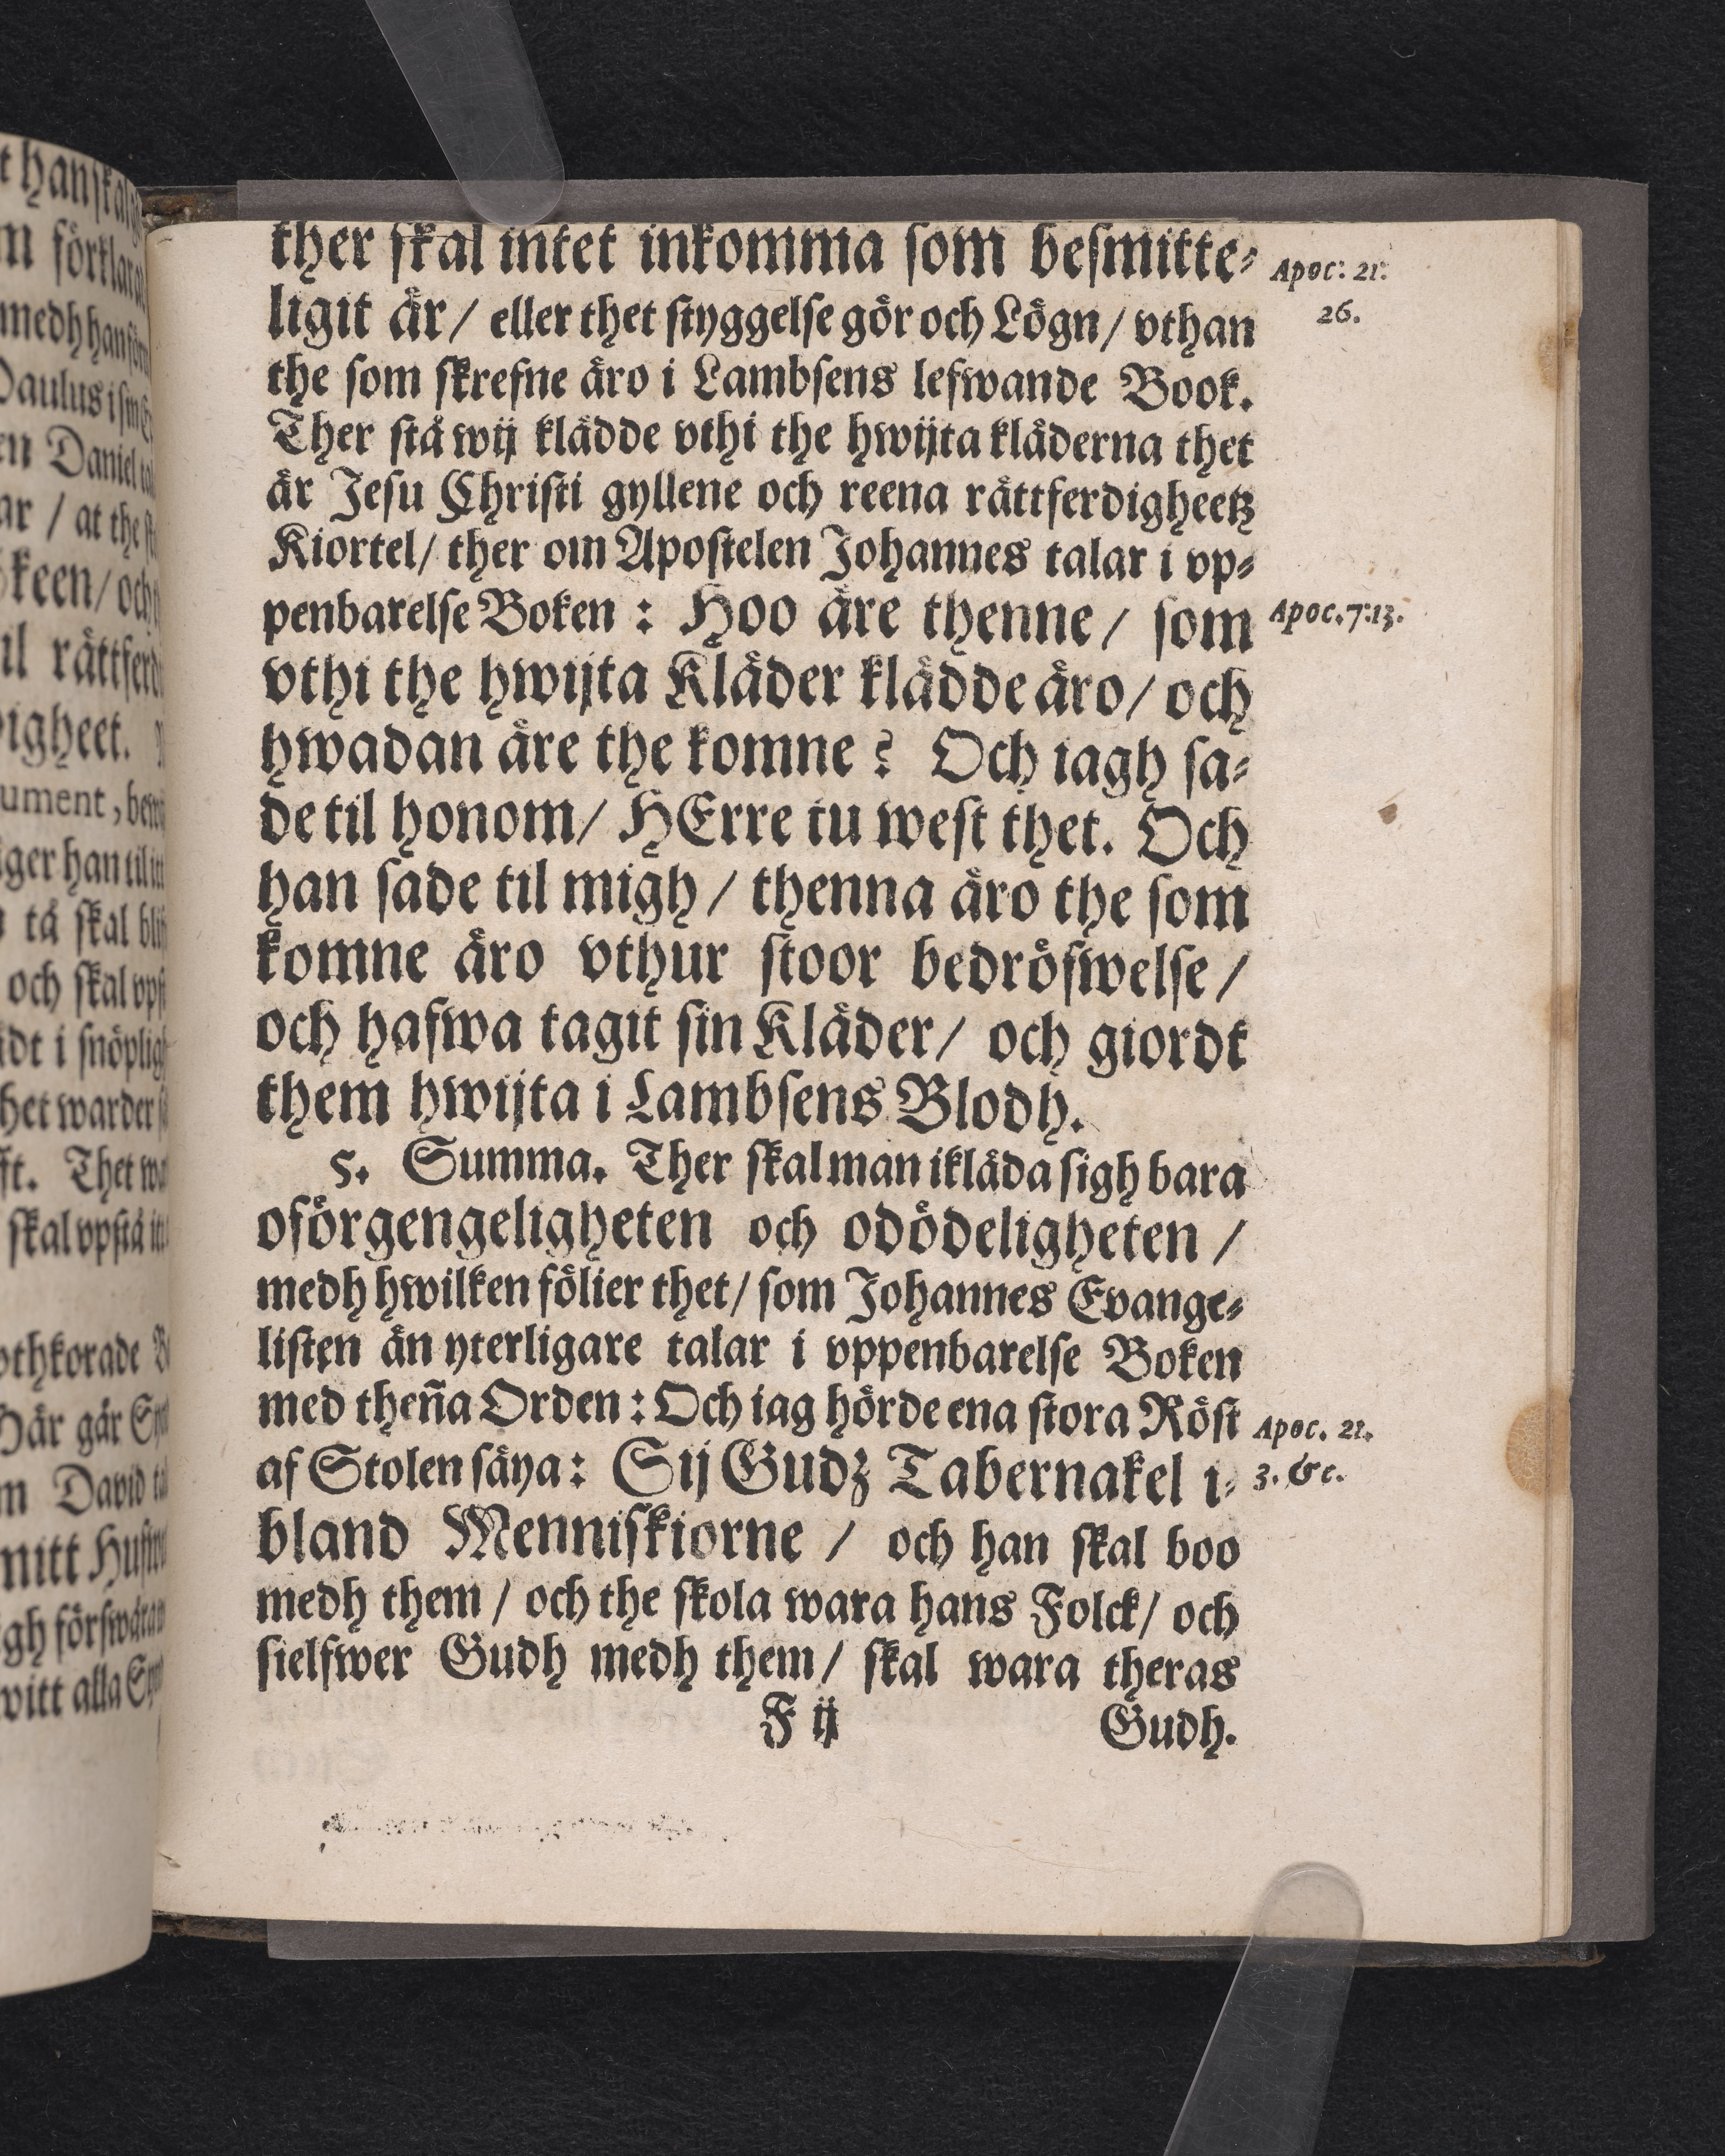 ther skal intet inkomma som besmitte-
ligit är / eller thet styggelse gör och Lögn / vthan
the som skrefne äro i Lambsens lefwande Book.
Ther stå wij klädde vthi the hwijta kläderna thet
är Jesu Christi gyllene och reena rättferdigheetz
Kiortel / ther om Apostelen Johannes talar i vp-
penbarelse Boken : Hoo äre thenne / som
vthi the hwijta Kläder klädde äro / och
hwadan äre the komne ? Och iagh sa-
de til honom / HErre tu west thet. Och
han sade til migh / thenna äro the som
komne äro vthur stoor bedröfwelse /
och hafwa tagit sin Kläder / och giordt
them hwijta i Lambsens Blodh.
5. Summa. Ther skal man ikläda sigh bara
oförgengeligheten och odödeligheten /
medh hwilken fölier thet / som Johannes Evange-
listen än yterligare talar i vppenbarelse Boken
med theña Orden : Och iag hörde ena stora Röst
af Stolen säya : Sij Gudz Tabernakel i-
bland Menniskiorne / och han skal boo
medh them / och the skola wara hans Folck / och
sielfwer Gudh medh them / skal wara theras
F ij Gudh.
Apoc: 21:
26.
Apoc. 7:13.
Apoc. 21.
3. &c.